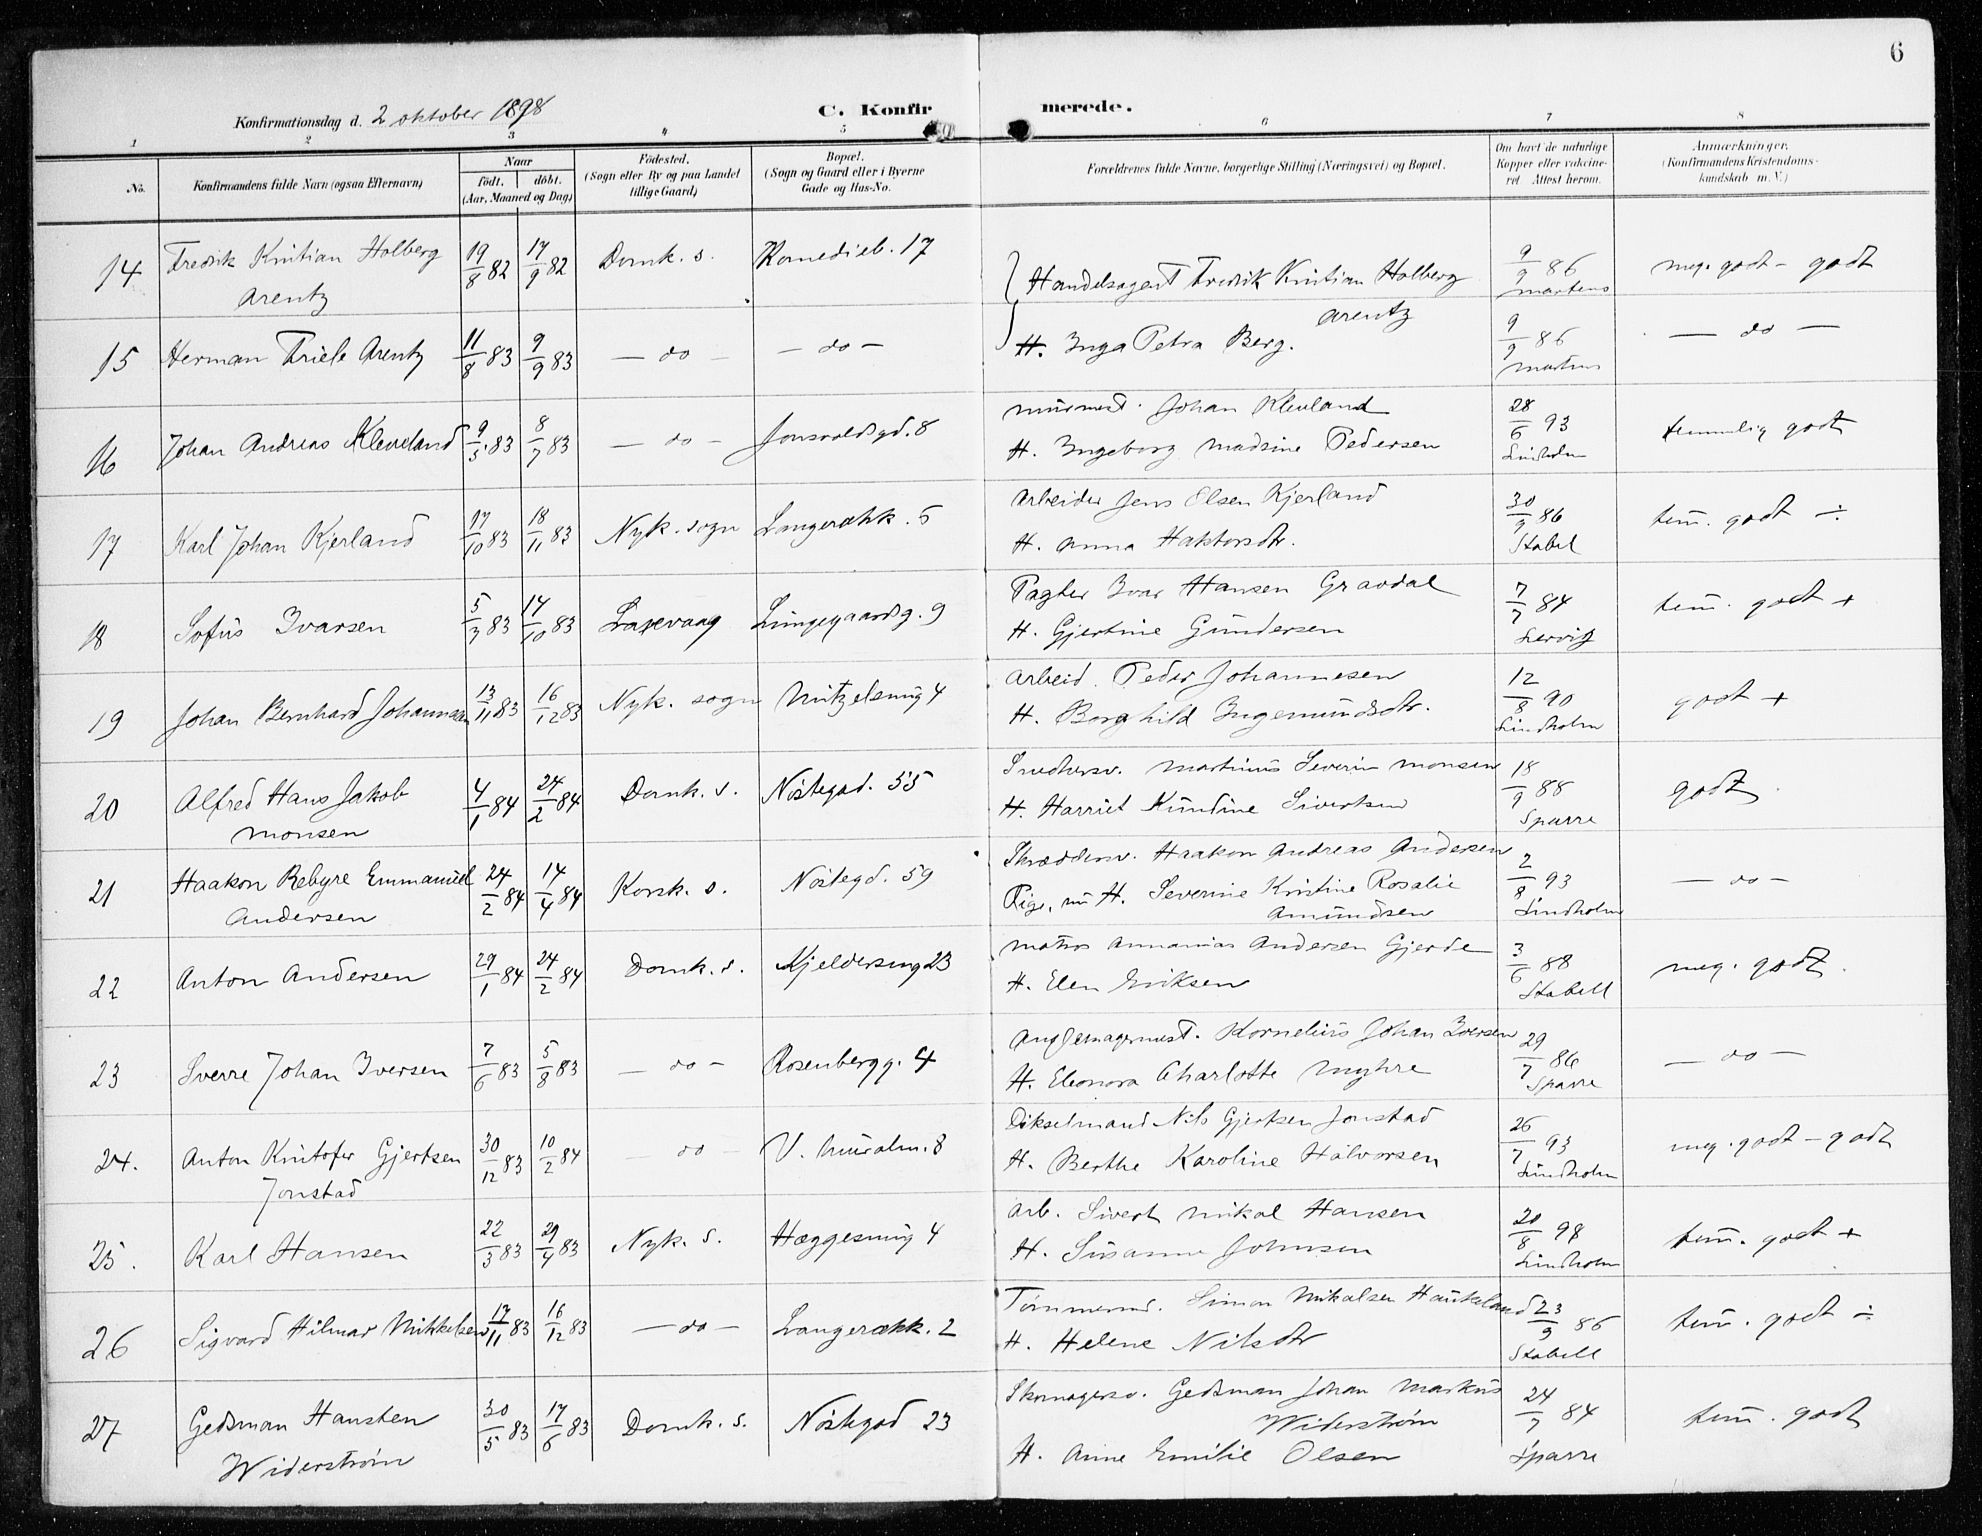 6
Konfirmationsdag d. 2 oktober 1898
C. Konfir merede.
1 2 3 4 5 6 7 8
No.
Konfirmandens fulde Navn (ogsaa Efternavn)
Naar
födt. döbt.
(Aar, Maaned og Dag)
Födested.
(Sogn eller By og paa Landet
tillige Gaard)
Bopæl.
(Sogn og Gaard eller i Byerne
Gade og Hus-No.
Forældrenes fulde Navne, borgerlige Stilling (Næringsvei) og Bopæl.
Om havt de naturlige
Kopper eller vakcine-
ret. Attest herom.
Anmærkninger.
(Konfirmandens Kristendoms-
kundskab m. V.)
14 Fredrik Kristian Holberg 19/8 82 17/9 82 Domk. s. Komedieb. 17 Handelsagent Fredrik Kristian Holberg 9/9 86 meg. godt - godt
Arentz Arentz Martens
15 Herman Friele Arentz 11/8 83 9/9 83 — do — — do — H. Inga Petra Berg. 9/9 86 — do —
Martens
16 Johan Andreas Kleveland 9/5 83 8/7 83 — do — Jonsvoldsgd. 8 Murmest. Johan Klevland 28/6 93 temmelig godt
H. Ingeborg Madsine Pedersen Lindholm
17 Karl Johan Kjerland 17/10 83 18/11 83 Nyk. sogn Langerækk. 5 Arbeider Jens Elsen Kjerland 30/9 86 tem. godt ÷
H. Anna Stabel
18 Sofus Ivarsen 5/7 83 14/10 83 Laxevaag Lungegaardsg. 9 Pagter Ivar Hansen Gravdal 7/7 84 tem. godt +
H. Gjertine Gundersen Lervig
19 Johan Bernhard Johannesen 13/11 83 16/12 83 Nyk. sogn Nutzelsmug 4 Arbeid. Peder Johannesen 12/8 90 godt +
H. Borghild Ingemundsdtr. Lindholm
20 Alfred Hans Jakob 4/1 84 24/2 84 Domk. s. Nöstegad. 55 Snedkersv. Martinus Severin Monsen 18/9 88 godt
Monsen H. Harriet Kundine Sivertsen Sparre
21 Haakon Rebyre Emmanuel 24/2 84 14/4 84 Korsk. s. Nöstegd. 59 Skræddersv. Haakon Andreas Andersen 2/8 93 — do —
Andersen Pige, nu H. Severine Kristine Rosalie Lindholm
Amundsen
22 Anton Andersen 29/1 84 24/2 84 Domk. s. Kjeldersmug 23 Matros Annanias Andersen Gjerde 3/6 88 meg. godt.
H. Elen Eriksen Stabell
23 Sverre Johan Iversen 7/6 83 5/8 83 — do — Rosenbergg. 4 Kornelius Johan Iversen 29/7 86 — do —
H. Eleonora Charlotte Myhre Sparre
24. Anton Kristofer Gjertsen 30/12 83 10/2 84 — do — V. Muralm. 8 Dikselmand Nils Gjertsen Jonstad 26/7 93 meg. godt - godt
Jonstad H. Berthe Karoline Halvorsen Lindholm
25. Karl Hansen 22/3 83 29/4 83 Nyk. s. Hæggesmug 4 Arb. Sivert Mikal Hansen 20/8 98 tem. godt +
H. Susanne Johnsen Lindholm
26 Sigvard Hilmar Mikkelsen 17/11 83 16/12 83 — do — Langerækk. 2 Tömmermd. Simon Mikalsen Haukeland 23/9 86 tem. godt ÷
H. Helene Nilsdtr Stabell
27 Gedsman Hansten 30/5 83 17/6 83 Domk. s. Nöstegad 23 Skomagersv. Gedsman Johan Markus 24/7 84 tem. godt
Widerström Widerström Sparre
H. Anne Emilie Olsen